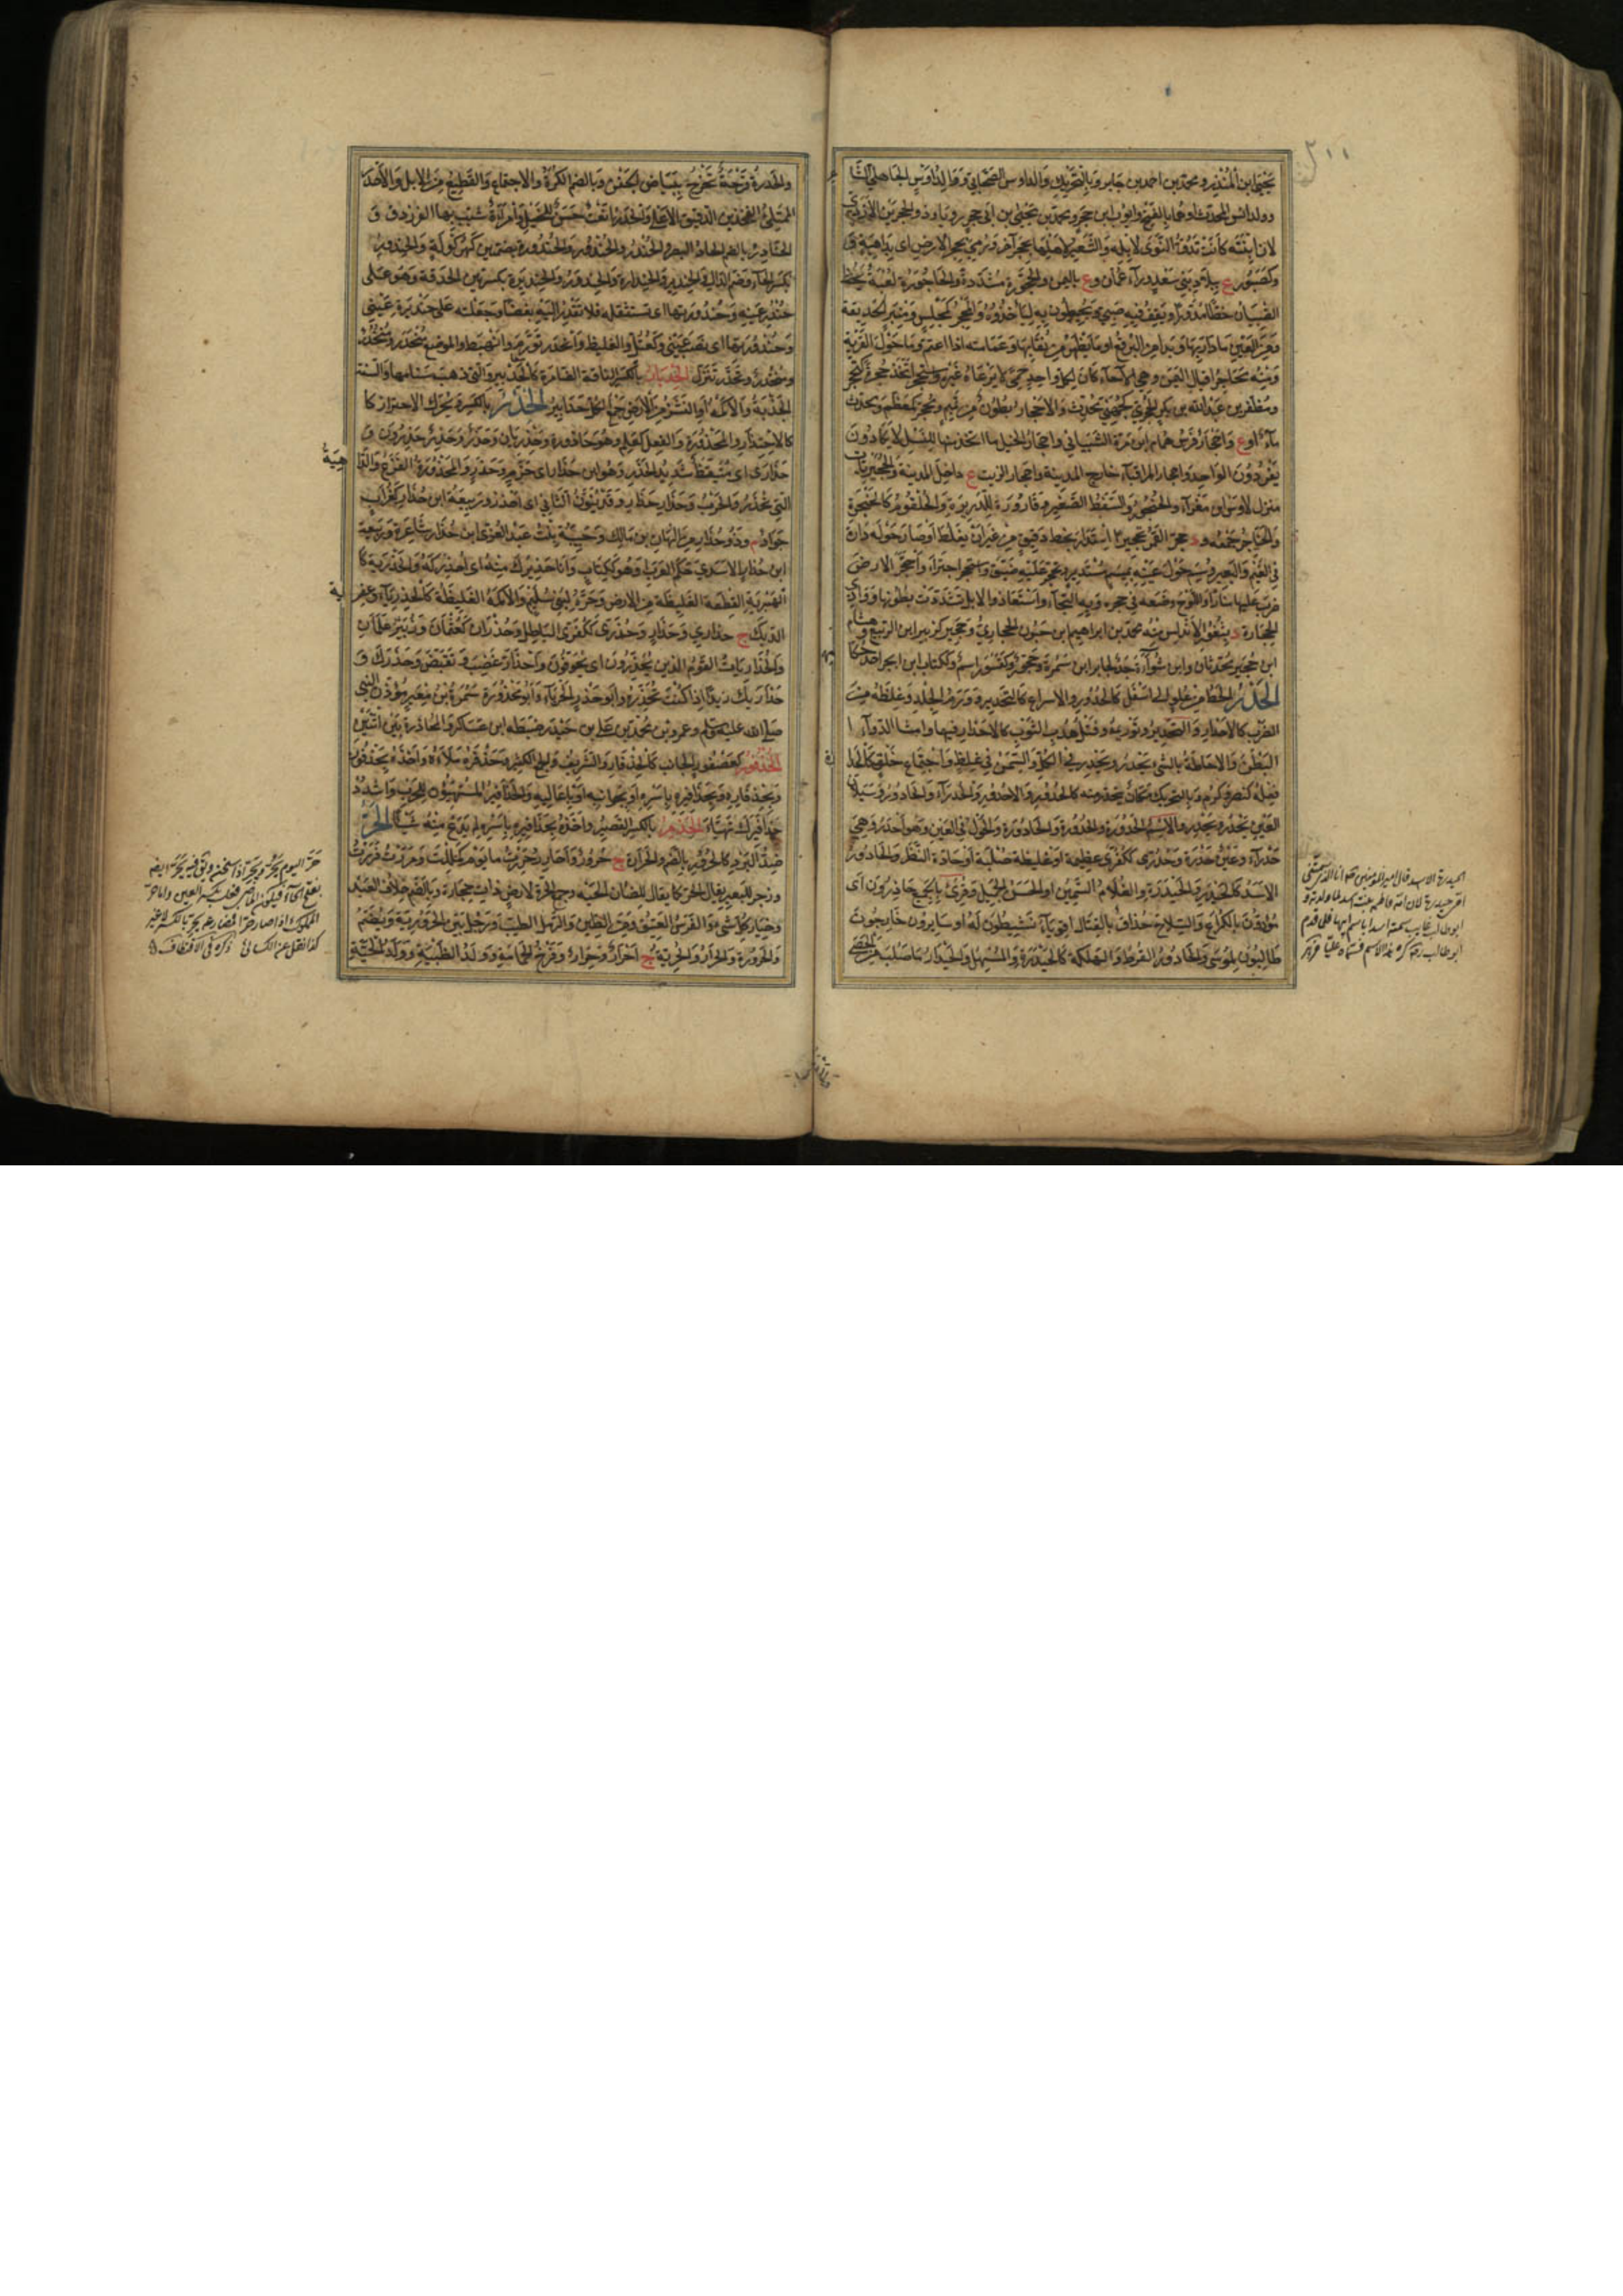 يحيى ابن المنذر ومحمد بن احمد بن جابر وبالتحريك والد اوس الصحابي ووالد اوس الجاهلي الشا
ووالد انس المحدث او هما بالفتح وايوب ابن حجر ومحمد بن يحيى بن ابي حجر
لان ابنته كانت تدق النوى لابله والشعير لاهلها بحجر آخر ورمي بحجر الارض اي بداهية و
وكصبور ع ببلاد بني سعد وراء عمان وع باليمن والحجورة مشددة والحاجورة لعبة يخط
الصبيان خطا مدورا ويقف فيه صبي ويحيطون به لياخذوه والمحجر كمجلس ومنبر الحديقة
ومن العين ما دار بها وبدا من البرقع او ما يظهر من نقابها وعمامته اذا اعتم وما حول القرية
ومنه محاجر اقيال اليمن وهي الاحماء كان لكل واحد حمى لا يرعاه غيره واستحجر اتخذ حجرة كتحجر
ومظفر بن عبد الله بن بكر الحجري كجهني محدث والاحجار بطون من تميم ومحجر كمعظم ومحدث
ماء او ع واحجار فرس همام ابن مرة الشيباني واحجار الخيل ما اتخذ منها للنسل لا يكادون
يفردون الواحد واحجار المراء بقباء خارج المدينة واحجار الزيت ع داخل المدينة والحجيريات
منزل لاوس ابن مغراء والحنجور السفط الصغير وقارورة للذريرة والحلقوم كالحنجرة
والحناجر جمعه ود وحجر القمر تحجيرا استدار بخط دقيق من غير ان يغلظ او صار حوله دارة
في الغيم والبعير وسم حول عينيه بميسم مستدير وتحجر عليه ضيق واستحجر اجترا واحتجر الارض
ضرب عليها منارا واللوح وضعه في حجره وبه التجا واستعاذ والابل تشددت بطونها ووادي
الحجارة د بثغور الاندلس منه محمد بن ابراهيم ابن حيون الحجاري وحجير كزبير ابن الربيع وهشام
ابن حجير محدثان وابن سواءة جد لجابر ابن سمرة وحنجور كقسور اسم وككتاب ابن ابجر احد حكا
الحدر الحط من علو الى اسفل كالحدور والاسراع كالتحدير وورم الجلد وغلظه من
الضرب كالاحدار والتحدير وتوريمه وفتل هدب الثوب كالاحدار فيهما وامشاء الدواء ا
البطن والاحاطة بالشيء يحدر ويحدر في الكل والسمن في غلظ واجتماع خلق كالحدا
فعله كنصر وكرم وبالتحريك مكان ينحدر منه كالحدور والاحدور والحدراء والحادور وسيلان
العين تحدر وتحدر والاسم الحدورة والحدورة والحادورة والحول في العين وهو احدر وهي
حدراء وعين حدرة وحدرى ككفرى عظيمة او غليظة صلبة او حادة النظر والحادور
الاسد كالحيدر والحيدرة والغلام السمين او الحسن الجميل وقرئ بالجميع حاذرون اي
مؤدون بالكراع والسلاح حذاق بالقتال اقوياء نشيطون له او سايرون خارجون
طالبون لموسى والحادور القرط والهلكة كالحيدرة والمسهل والحيدار ما صلب من الحصى
الحيدرة الاسد قال امير المؤمنين كرم انا الذي سمتني
امي حيدرة لان امه فاطمة بنت اسد لما ولدته و
ابو طالب غايب سمته اسدا باسم ابيها فلما قدم
ابو طالب كره هذا الاسم فسماه عليا
والحدرة قرحة تخرج ببياض الجفن وبالضم الكثرة والاجتماع والقطيع من الابل والاحدر
الممتلئ الفخذين الدقيق الاعلى والحدراء نعت حسن للخيل وامراة شبب بها الفرزدق و
الحنادر بالضم الحاد البصر والحندر والحندور والحندورة بضمتين كهركولة والحندور
بكسر الحاء وضم الدال والحندير والحندارة والحندورة والحنديرة بكسرهن الحدقة وهو على
حندر عينه وحندورتها اي تستثقله فلا تقدر النظر اليه بغضا وجعلته على حنديرة عيني
وحندورتها اي نصب عيني وكعتل الغليظ وانحدر تورم وانهبط والموضع منحدر ومنحدر
ومنحدر وتحدر تنزل الحدبار بالكسر الناقة الضامرة كالحدبير والتي ذهب سنامها والسنة
الجدبة والاكمة او النشز من الارض ج الكل حدابير الحذر بالكسر ويحرك الاحتراز كا
كالاحتذار والمحذورة والفعل كعلم وهو حاذورة وحذريان وحذر وحذر ج حذرون و
حذارى اي متيقظ شديد الحذر وهو ابن حذار اي حزم وحذر والمحذورة الفزع والداهية
التي تحذر والحرب وحذار حذار وقد ينون الثاني اي احذر وربيعة ابن حذار كغراب
جواد م وذو حذار من الهان بن مالك وحبيبة بنت عبد العزى ابن حذار شاعرة وربيعة
ابن حذار الاسدي حكم العرب وهو ككتاب وانا حذيرك منه اي احذركه والحذرية كا
الهبرية القطعة الغليظة من الارض وحرة لبني سليم والاكمة الغليظة كالحذرياء وعفرية
الديك ج حذاري وحذار وحذرى ككفرى الباطل وحذران كعثمان وزبير علمان
والحذاريات القوم الذين يحذرون اي يخوفون واحذار غضب وتقبض وحذرك و
حذاريك زيدا اذا كنت تحذره وابو حذر الحرباء وابو محذورة سمرة بن معير مؤذن النبي
صلى الله عليه وسلم وعمرو بن محمد بن علي بن حيذر ضبطه ابن عساكر والمحاذرة بين اثنين
الحذفور كعصفور الجانب كالحذفار والشريف والجمع الكثير وحذفره ملأه واخذه بحذفوره
وبحذفاره وبحذافيره باسره او بجوانبه او باعاليه والحذافير المتهيئون للحرب واشدد
حذافيرك تهيأ الحذمر بالكسر القصير واخذه بحذاميره باسره لم يدع منه شيئا الحر
ضد البرد كالحرور بالضم والحرارة ج حرور واحارر وحررت يا يوم كمللت ومررت فررت
وزجر للبعير يقال الحر كما يقال للضان الحيه وجمع الحرة لارض ذات حجارة وبالضم خلاف العبد
وخيار كل شيء والفرس العتيق ومن الطين والرمل الطيب ورجل بين الحرورية ويضم
والحرورة والحرار والحرية ج احرار وحرار وفرخ الحمامة وولد الظبية وولد الحية
حر اليوم يحر ويحر اذا سخن
بفتح الحاء
المملوك اذا صار حرا
كذا نقل عن الكسائي